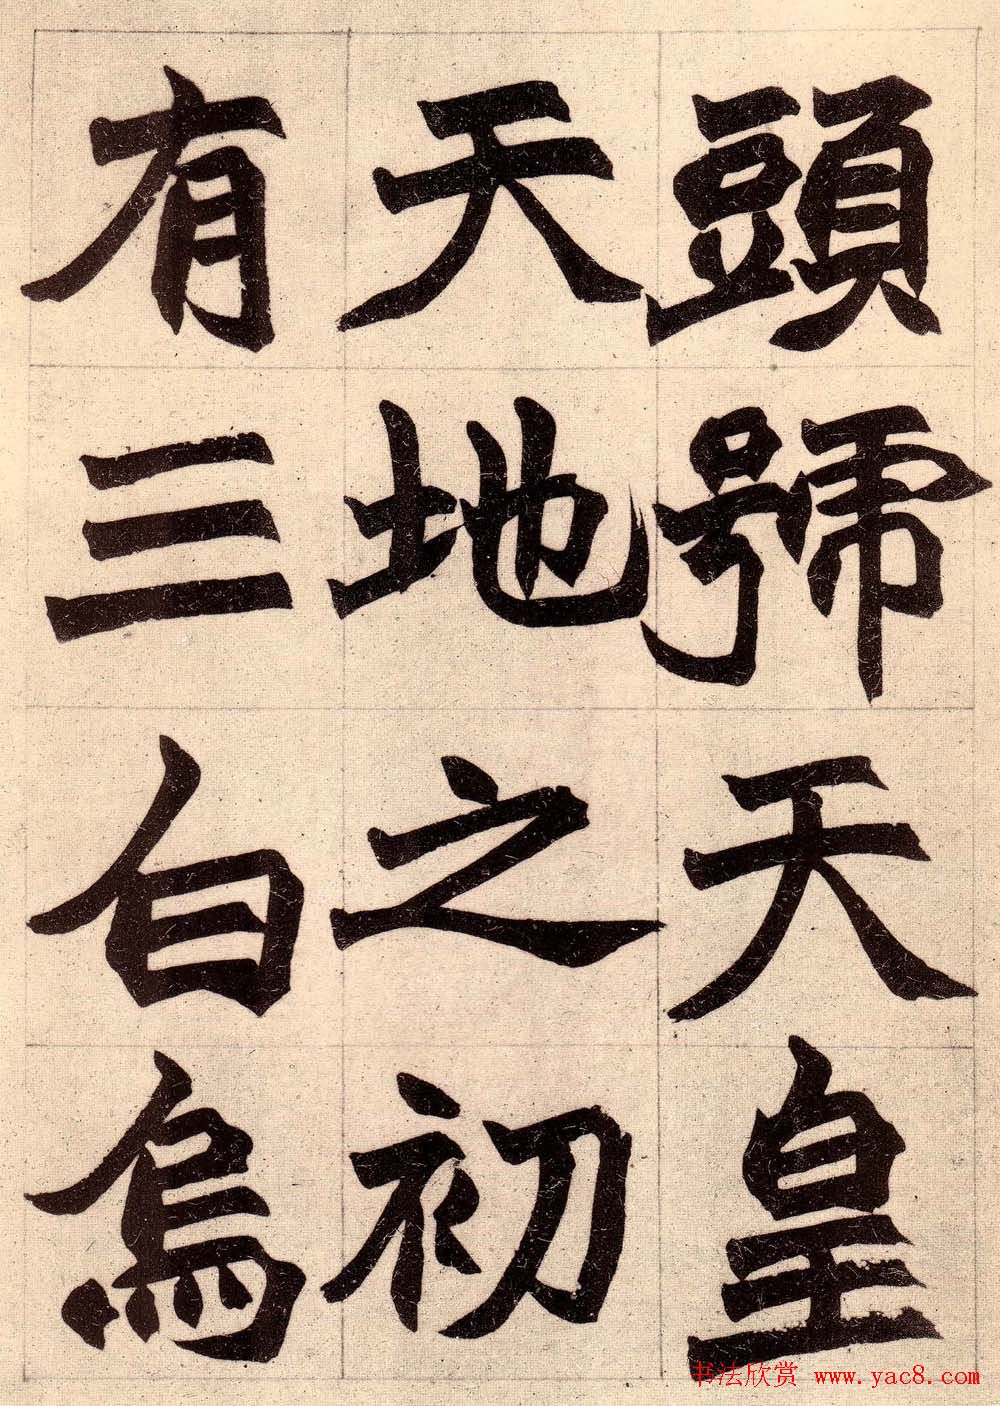 頭號天皇
天地之初
有三白烏
书法欣赏 www.yac8.com